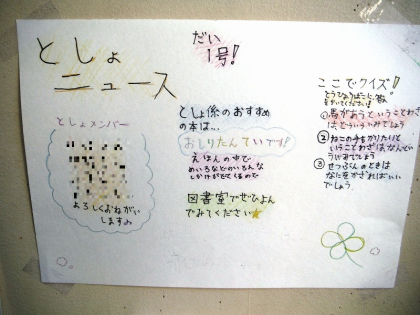 としょ
ニュース
だい
1号!
としょメンバー
よろしくおねがい
します
としょ係のおすすめ
の本は…
おしりたんていです!
えほんの中で
めいろなどのいろんな
しかけがでてくるので
図書室でぜひよん
でみてください
ここでクイズ!
①馬があうということわざ
はどういういみでしょう
②ねこの手もかりたいと
いうことわざはなんでい
ういみでしょう
③せつぶんのときは
なにをかざればいい
でしょう